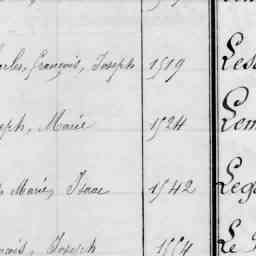 arles, François, Joseph 1519 Les
seph, Marie 1524 Lem
Marie, Isaac 1542 Leg
nçois, Joseph 1554 Le